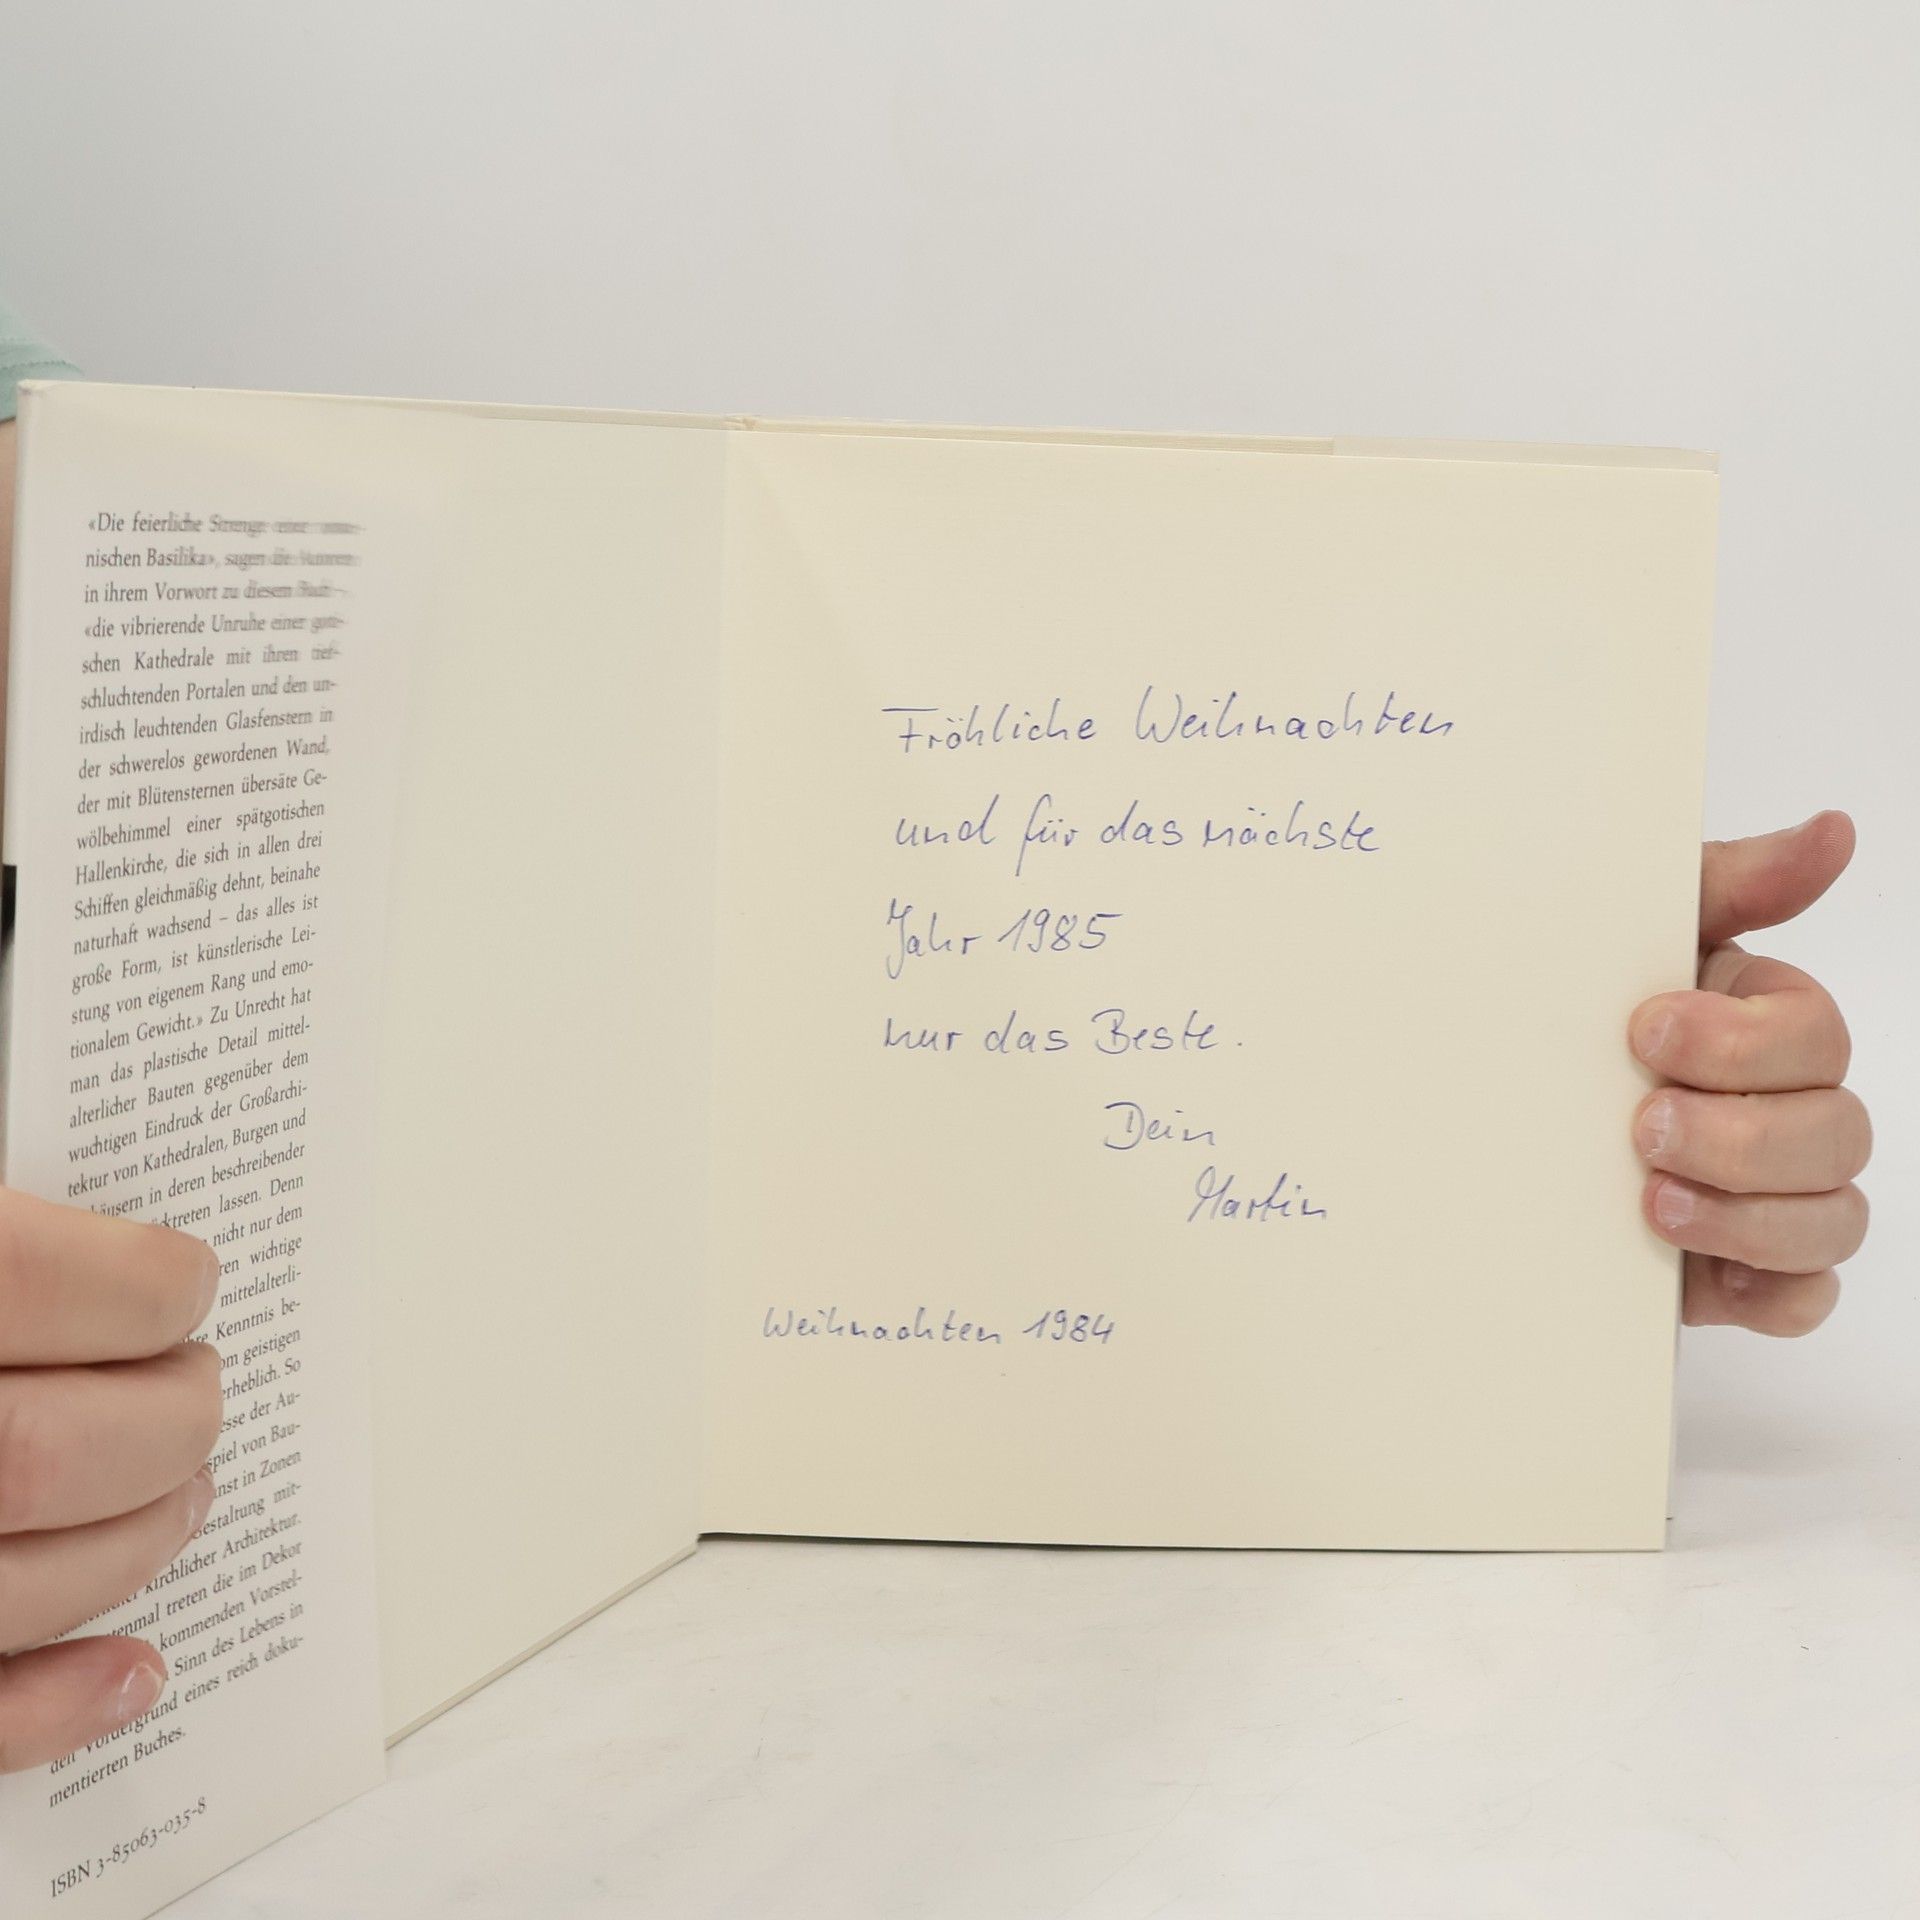 «Die feierliche Strenge einer
nischen Basilika», sagen die Autoren
in ihrem Vorwort zu diesem Buch –
«die vibrierende Unruhe einer goti-
schen Kathedrale mit ihren tief-
schluchtenden Portalen und den un-
irdisch leuchtenden Glasfenstern in
der schwerelos gewordenen Wand,
der mit Blütensternen übersäte Ge-
wölbehimmel einer spätgotischen
Hallenkirche, die sich in allen drei
Schiffen gleichmäßig dehnt, beinahe
naturhaft wachsend – das alles ist
große Form, ist künstlerische Lei-
stung von eigenem Rang und emo-
tionalem Gewicht.» Zu Unrecht hat
man das plastische Detail mittel-
alterlicher Bauten gegenüber dem
wuchtigen Eindruck der Großarchi-
tektur von Kathedralen, Burgen und
in deren beschreibender
lassen. Denn
nicht nur dem
wichtige
mittelalterli-
Kenntnis be-
geistigen
erheblich. So
der Au-
von Bau-
in Zonen
mit-
kirchlicher Architektur.
treten die im Dekor
kommenden Vorstel-
Sinn des Lebens in
den Vordergrund eines reich doku-
mentierten Buches.
ISBN 3-85063-035-8
Fröhliche Weihnachten
und für das nächste
Jahr 1985
nur das Beste.
Dein
Martin
Weihnachten 1984